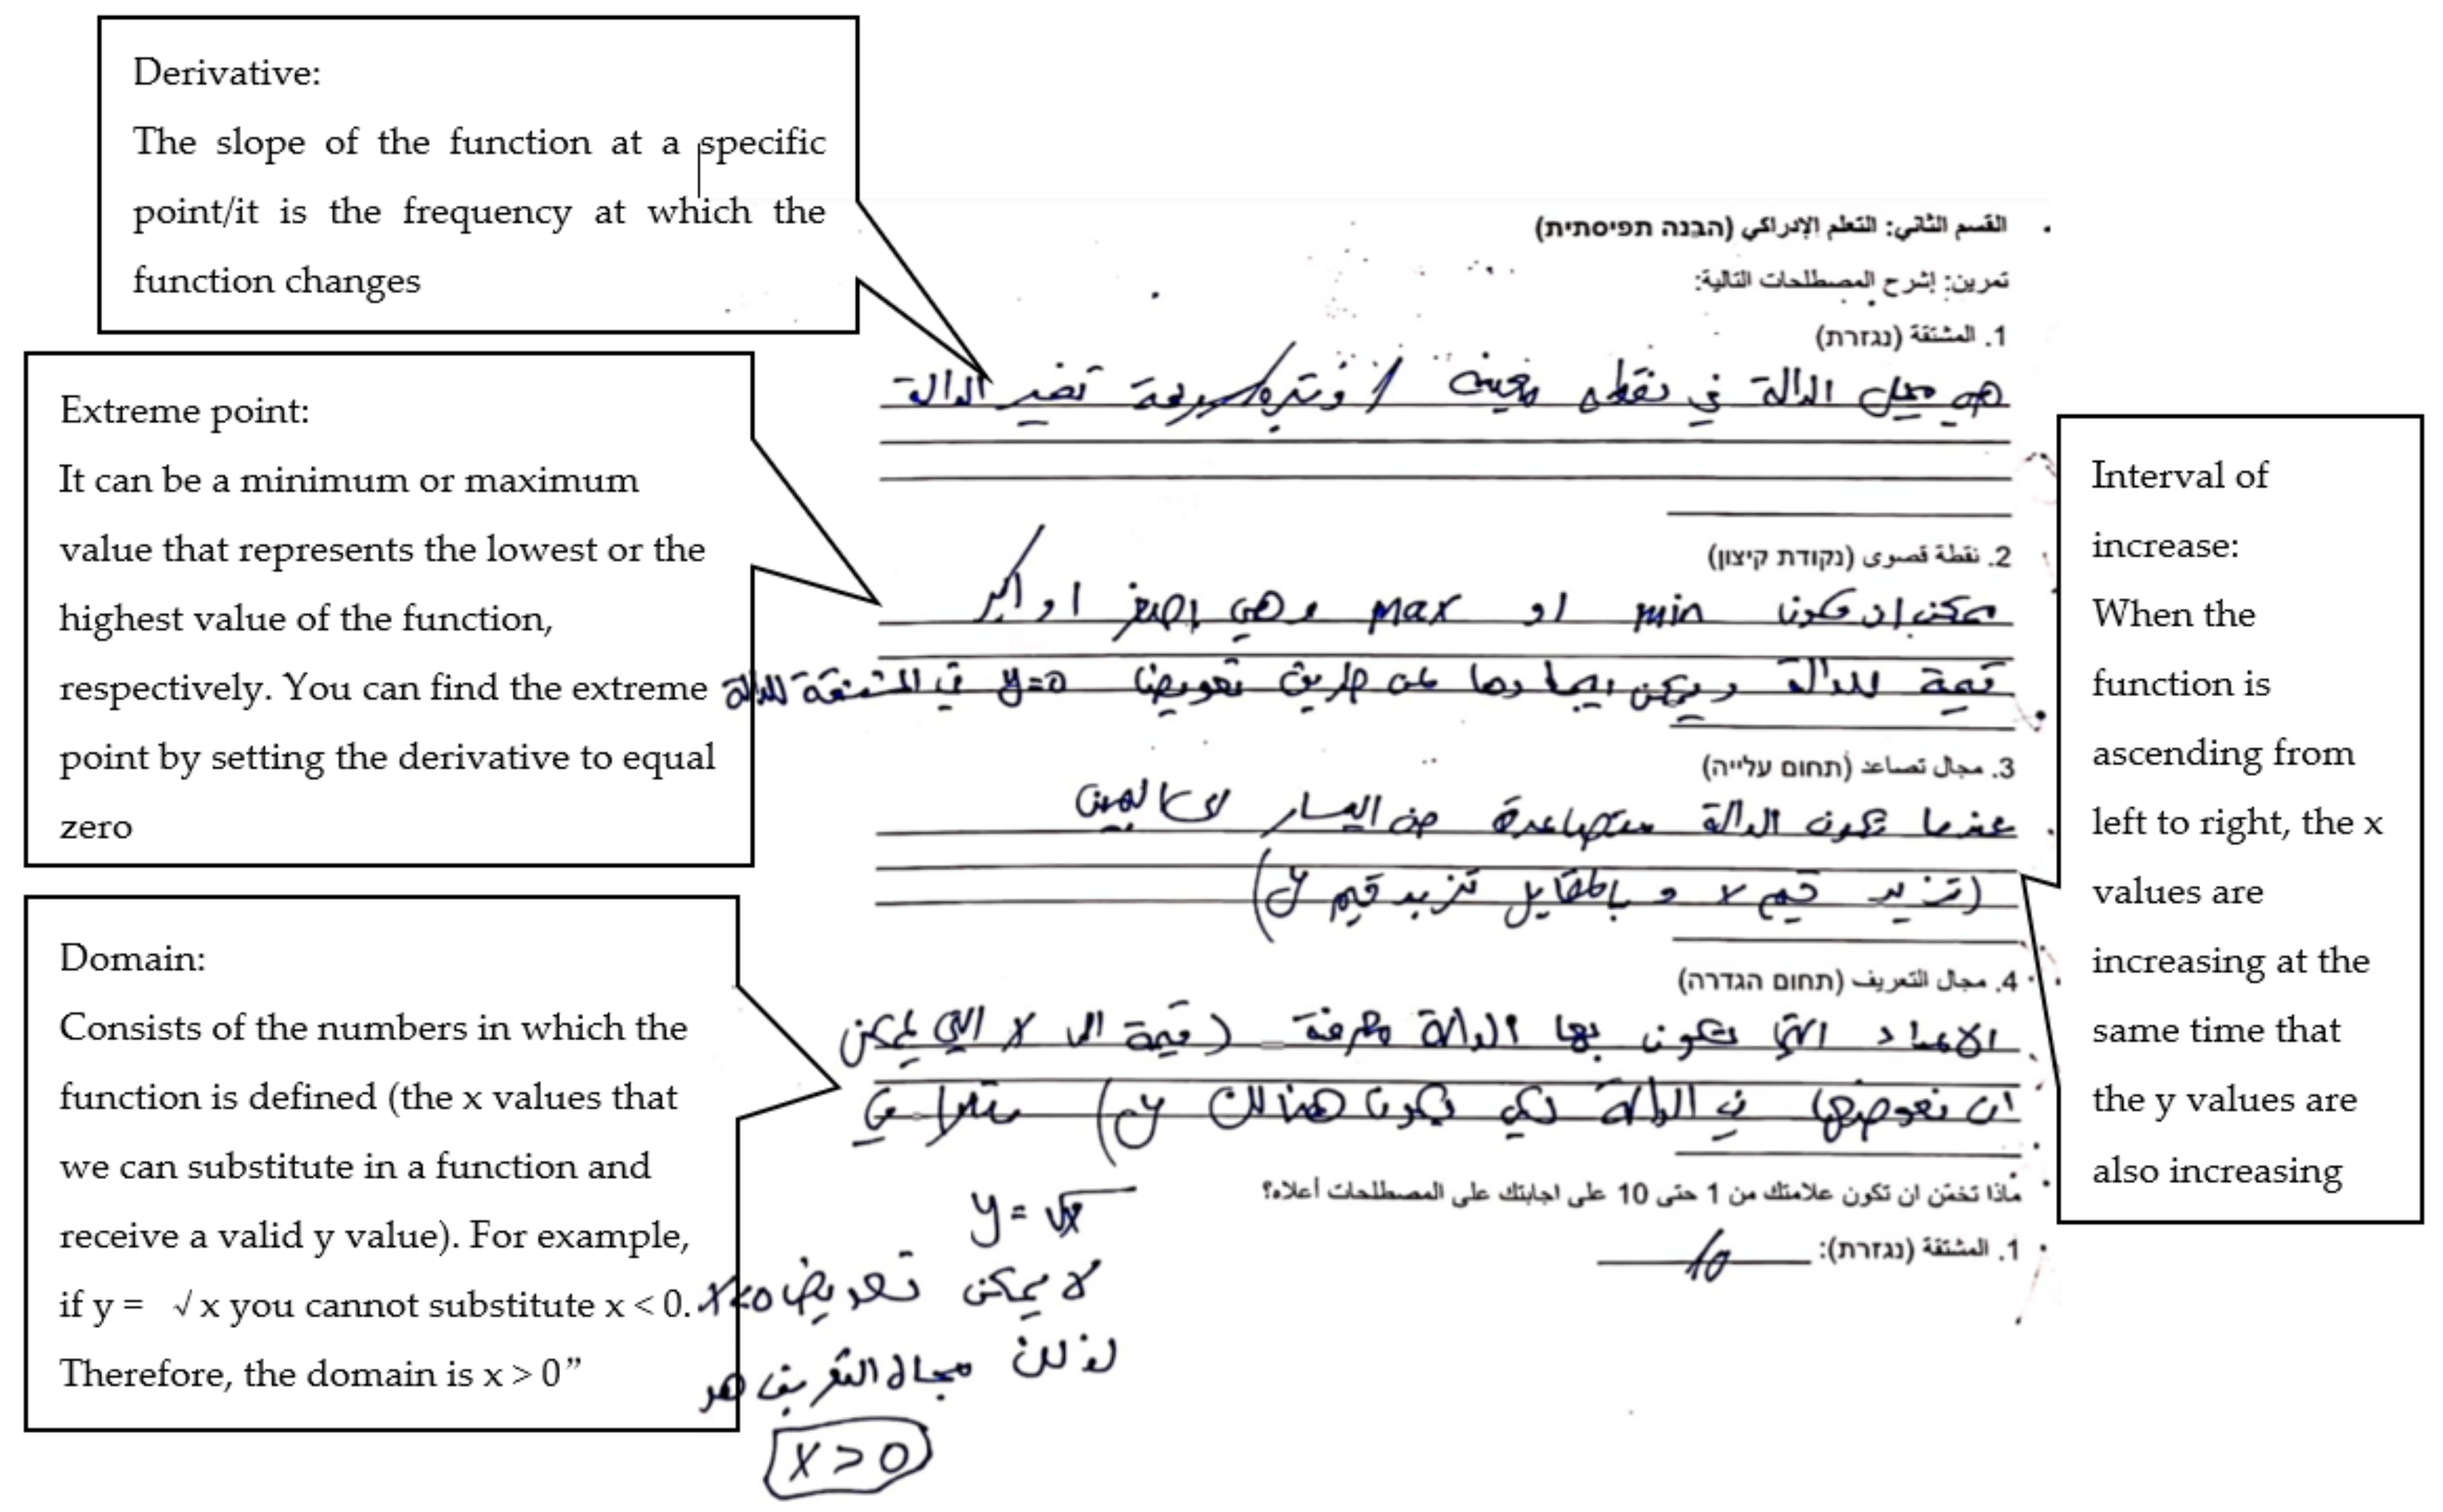 Derivative:
The slope of the function at a specific
point/it is the frequency at which the
function changes
Extreme point:
It can be a minimum or maximum
value that represents the lowest or the
highest value of the function,
respectively. You can find the extreme
point by setting the derivative to equal
zero
Domain:
Consists of the numbers in which the
function is defined (the x values that
we can substitute in a function and
receive a valid y value). For example,
if y = √ x you cannot substitute x < 0.
Therefore, the domain is x > 0”
القسم الثاني: التعلم الإدراكي (הבנה תפיסתית)
تمرين: إشرح المصطلحات التالية:
1. المشتقة (נגזרת)
هو ميل الدالة في نقطة معينة / وتيرة سرعة تغير الدالة
2. نقطة قصوى (נקודת קיצון)
ممكن ان تكون min او max وهي اصغر او اكبر
قيمة للدالة ويمكن ايجادها عن طريق تعويض y=0 في المشتقة للدالة
3. مجال تصاعد (תחום עלייה)
عندما تكون الدالة متصاعدة من اليسار الى اليمين
(تزيد قيم x و بالمقابل تزيد قيم y)
4. مجال التعريف (תחום הגדרה)
الاعداد التي تكون بها الدالة معرفة (قيمة ال x التي يمكن
ان نعوضها في الدالة لكي يكون هنالك y)
ماذا تخمّن ان تكون علامتك من 1 حتى 10 على اجابتك على المصطلحات أعلاه؟
1. المشتقة (נגזרת): 10
y = √x
لا يمكن تعويض x<0
لذلك مجال التعريف هو
x > 0
Interval of
increase:
When the
function is
ascending from
left to right, the x
values are
increasing at the
same time that
the y values are
also increasing